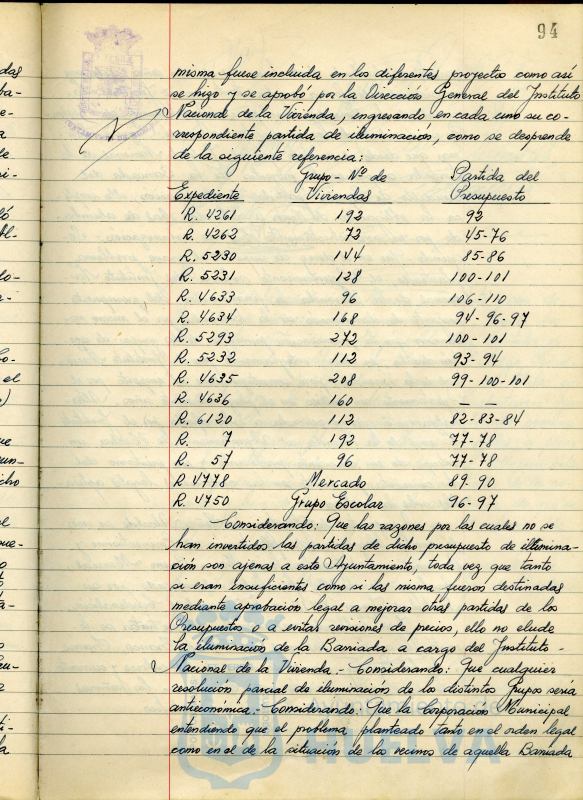 94
misma fuese incluida en los diferentes proyectos como así
se hizo y se aprobó por la Dirección General del Instituto
Nacional de la Vivienda, ingresando en cada uno su co-
rrespondiente partida de iluminación, como se desprende
de la siguiente referencia:
Grupo - Nº de Partida del
Expediente Viviendas Presupuesto
R. 4261 192 92
R. 4262 72 45-76
R. 5230 144 85-86
R. 5231 128 100-101
R. 4633 96 106-110
R. 4634 168 94-96-97
R. 5293 272 100-101
R. 5232 112 93-94
R. 4635 208 99-100-101
R. 4636 160 — —
R. 6120 112 82-83-84
R. 7 192 77-78
R. 57 96 77-78
R. 4778 Mercado 89-90
R. 4750 Grupo Escolar 96-97
Considerando: Que las razones por las cuales no se
han invertidos las partidas de dicho presupuesto de ilumina-
ción son ajenas a este Ayuntamiento, toda vez que tanto
si eran insuficientes como si las misma fueron destinadas
mediante aprobación legal a mejorar otras partidas de los
Presupuestos o a evitar revisiones de precios, ello no elude
la iluminación de la Barriada a cargo del Instituto-
Nacional de la Vivienda.- Considerando: Que cualquier
resolución parcial de iluminación de los distintos Grupos sería
antieconómica.- Considerando: Que la Corporación Municipal
entendiendo que el problema planteado tanto en el orden legal
como en el de la situación de los vecinos de aquella Barriada